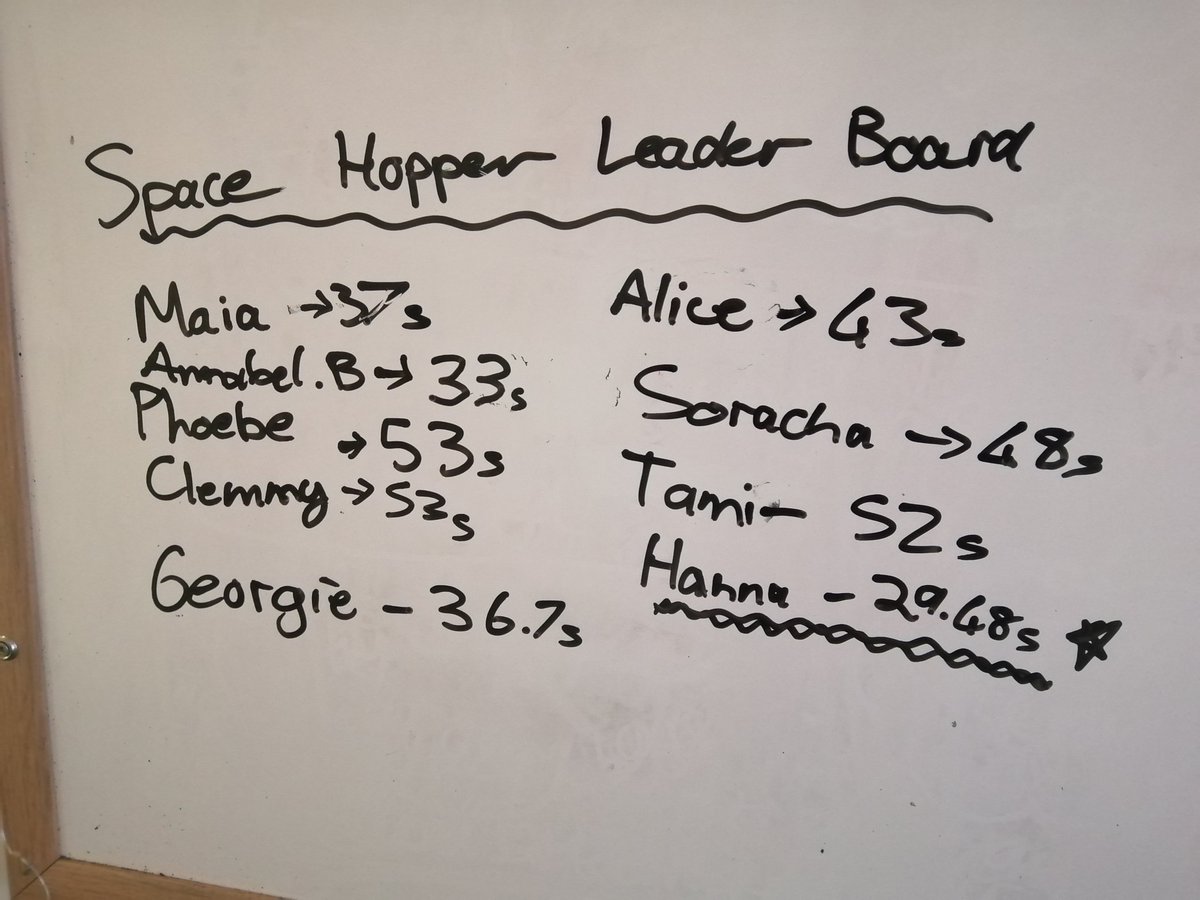 Space Hopper Leader Board
Maia → 37s
Annabel.B → 33s
Phoebe → 53s
Clemmy → 53s
Georgie - 36.7s
Alice → 43s
Soracha → 48s
Tami - 52s
Hanna - 29.48s ★